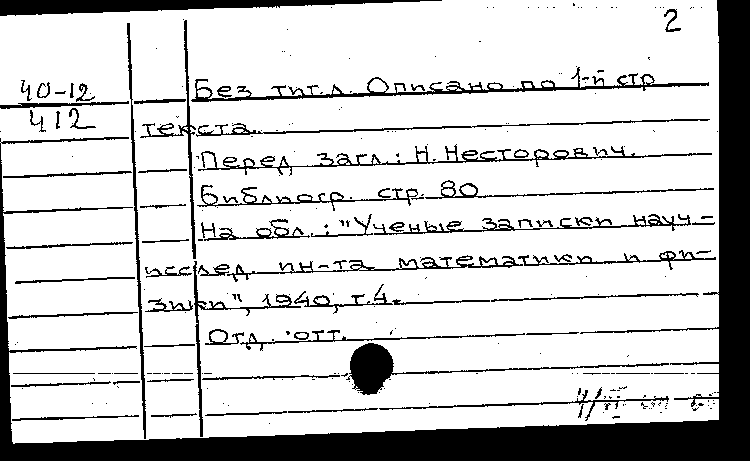 2
40-12
412
Без тит.л. Описано по 1-й стр
текста.
Перед загл.: Н. Несторович.
Библиогр. стр. 80
На обл.: "Ученые записки науч-
исслед. ин-та математики и фи-
зики", 1940, т.4.
Отд. отт.
4/VI